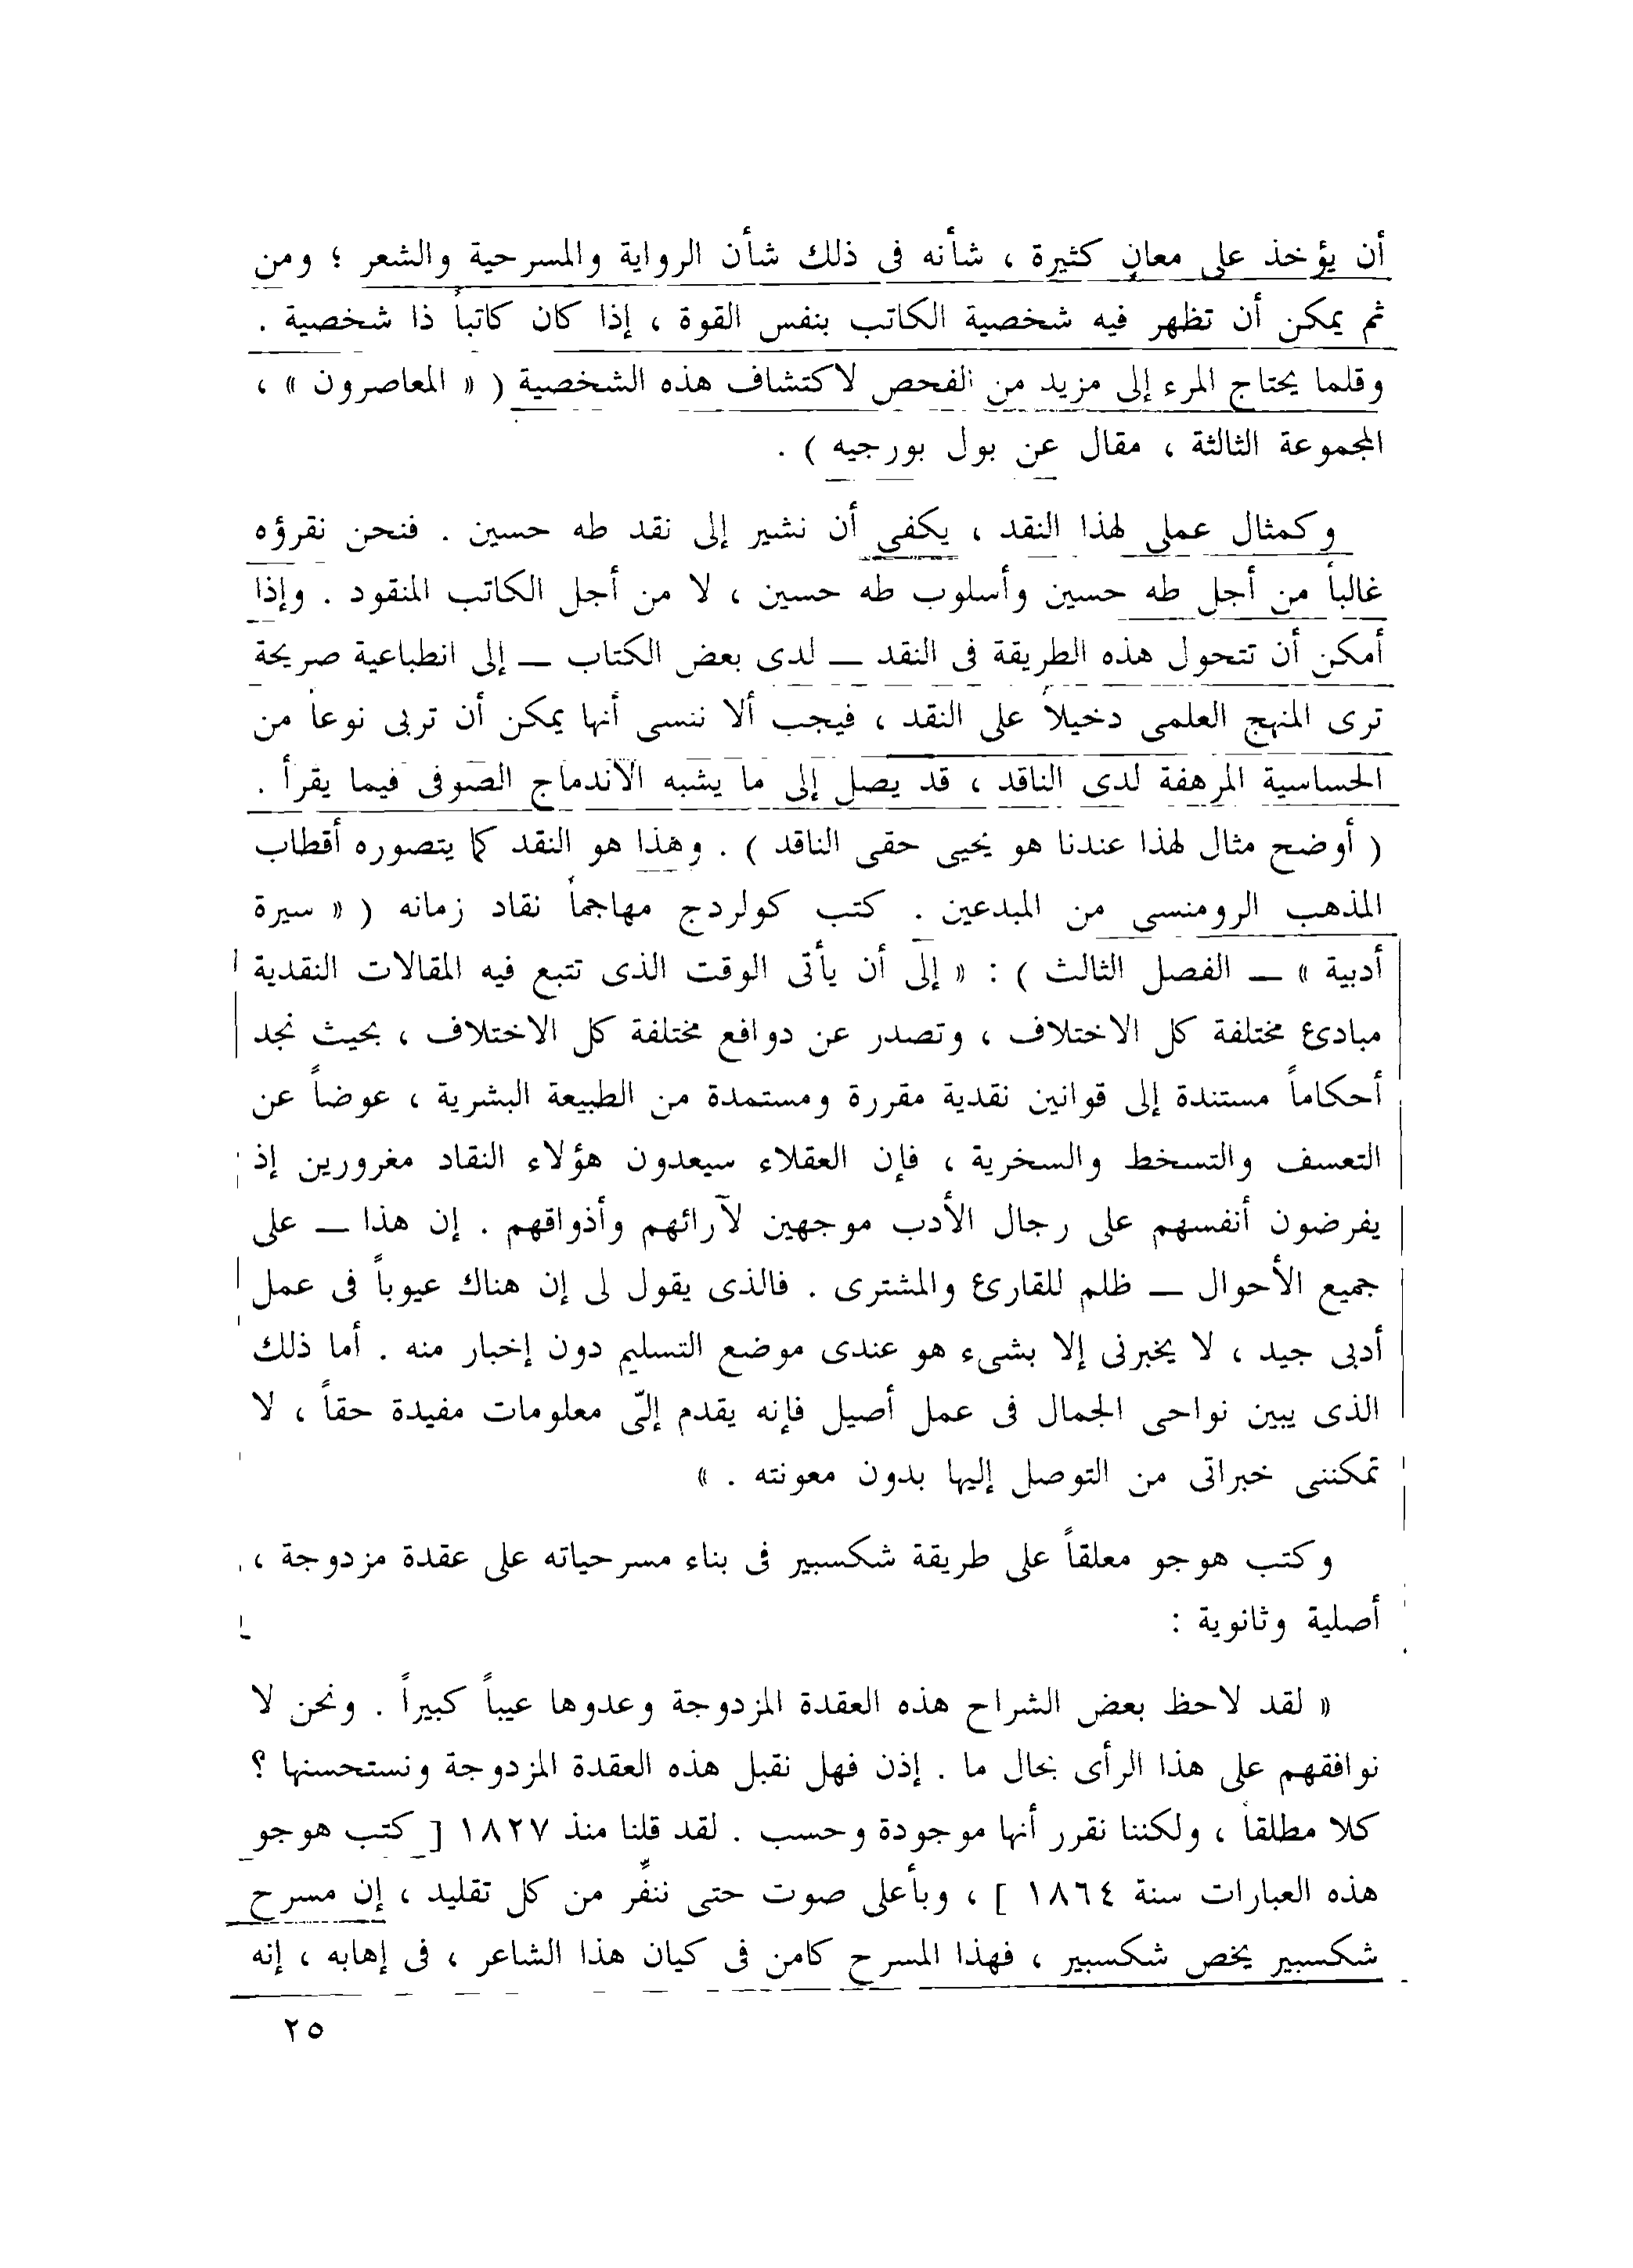 أن يؤخذ على معانٍ كثيرة ، شأنه فى ذلك شأن الرواية والمسرحية والشعر ؛ ومن
ثم يمكن أن تظهر فيه شخصية الكاتب بنفس القوة ، إذا كان كاتباً ذا شخصية .
وقلما يحتاج المرء إلى مزيد من الفحص لاكتشاف هذه الشخصية ( « المعاصرون » ،
المجموعة الثالثة ، مقال عن بول بورجيه ) .
وكمثال عملى لهذا النقد ، يكفى أن نشير إلى نقد طه حسين . فنحن نقرؤه
غالباً من أجل طه حسين وأسلوب طه حسين ، لا من أجل الكاتب المنقود . وإذا
أمكن أن تتحول هذه الطريقة فى النقد — لدى بعض الكتاب — إلى انطباعية صريحة
ترى المنهج العلمى دخيلاً على النقد ، فيجب ألا ننسى أنها يمكن أن تربى نوعاً من
الحساسية المرهفة لدى الناقد ، قد يصل إلى ما يشبه الاندماج الصوفى فيما يقرأ .
( أوضح مثال لهذا عندنا هو يحيى حقى الناقد ) . وهذا هو النقد كما يتصوره أقطاب
المذهب الرومنسى من المبدعين . كتب كولردج مهاجماً نقاد زمانه ( « سيرة
أدبية » — الفصل الثالث ) : « إلى أن يأتى الوقت الذى تتبع فيه المقالات النقدية
مبادئ مختلفة كل الاختلاف ، وتصدر عن دوافع مختلفة كل الاختلاف ، بحيث نجد
أحكاماً مستندة إلى قوانين نقدية مقررة ومستمدة من الطبيعة البشرية ، عوضاً عن
التعسف والتسخط والسخرية ، فإن العقلاء سيعدون هؤلاء النقاد مغرورين إذ
يفرضون أنفسهم على رجال الأدب موجهين لآرائهم وأذواقهم . إن هذا — على
جميع الأحوال — ظلم للقارئ والمشترى . فالذى يقول لى إن هناك عيوباً فى عمل
أدبى جيد ، لا يخبرنى إلا بشىء هو عندى موضع التسليم دون إخبار منه . أما ذلك
الذى يبين نواحى الجمال فى عمل أصيل فإنه يقدم إلىّ معلومات مفيدة حقاً ، لا
تمكننى خبراتى من التوصل إليها بدون معونته . »
وكتب هوجو معلقاً على طريقة شكسبير فى بناء مسرحياته على عقدة مزدوجة ،
أصلية وثانوية :
« لقد لاحظ بعض الشراح هذه العقدة المزدوجة وعدوها عيباً كبيراً . ونحن لا
نوافقهم على هذا الرأى بحال ما . إذن فهل نقبل هذه العقدة المزدوجة ونستحسنها ؟
كلا مطلقاً ، ولكننا نقرر أنها موجودة وحسب . لقد قلنا منذ ١٨٢٧ [ كتب هوجو
هذه العبارات سنة ١٨٦٤ ] ، وبأعلى صوت حتى ننفِّر من كل تقليد ، إن مسرح
شكسبير يخص شكسبير ، فهذا المسرح كامن فى كيان هذا الشاعر ، فى إهابه ، إنه
٢٥